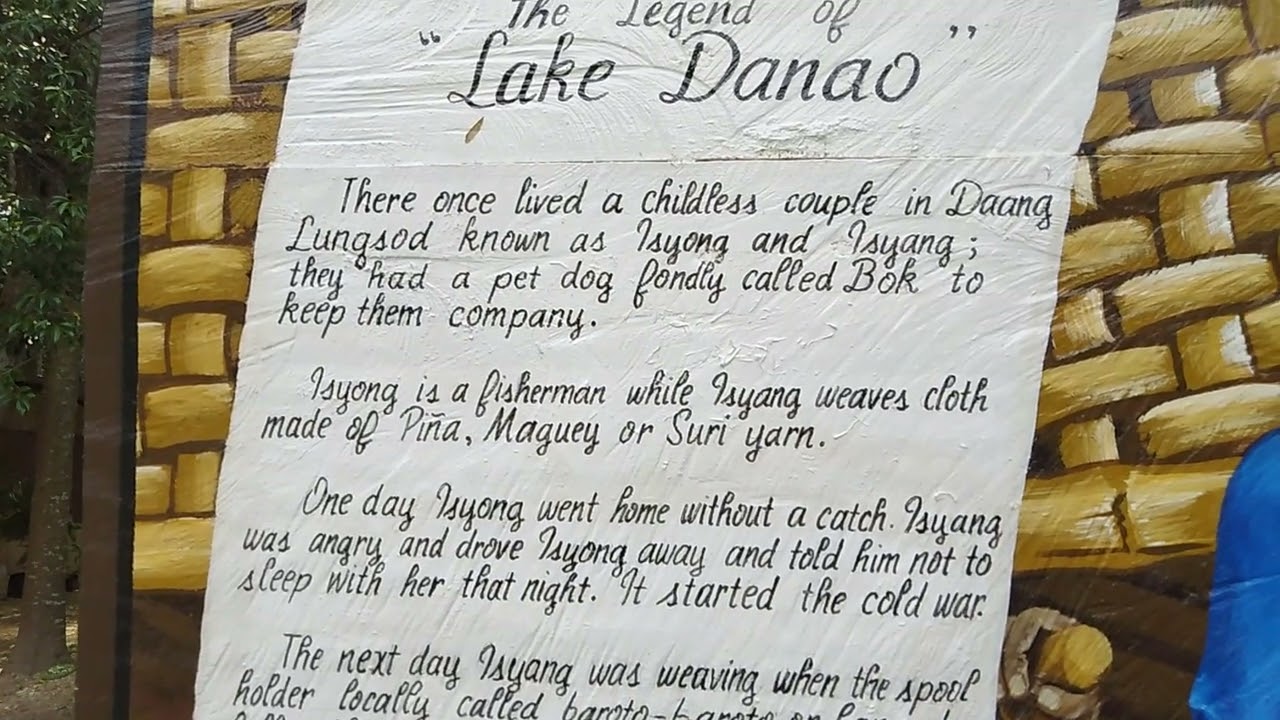 The Legend of
"Lake Danao"
There once lived a childless couple in Daang
Lungsod known as Isyong and Isyang;
they had a pet dog fondly called Bok to
keep them company.
Isyong is a fisherman while Isyang weaves cloth
made of Piña, Maguey or Suri yarn.
One day Isyong went home without a catch. Isyang
was angry and drove Isyong away and told him not to
sleep with her that night. It started the cold war.
The next day Isyang was weaving when the spool
holder locally called baroto-baroto or